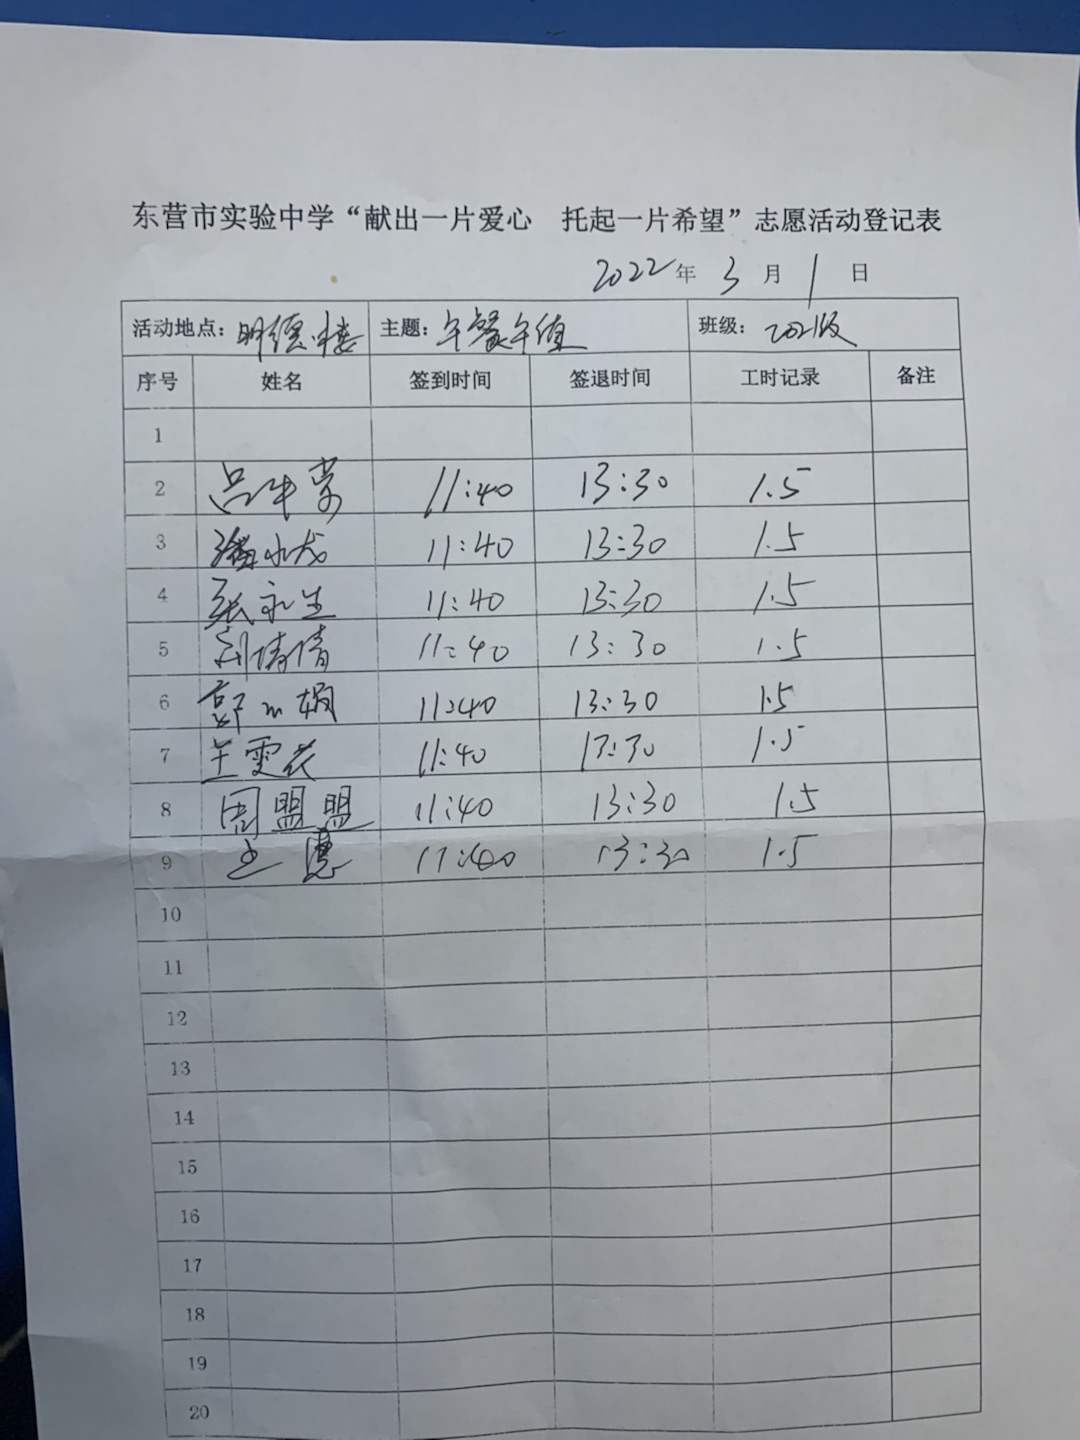 东营市实验中学“献出一片爱心 托起一片希望”志愿活动登记表
2022年 3月 1日
活动地点：明德楼 主题：午餐午值 班级：
序号 姓名 签到时间 签退时间 工时记录 备注
1
2 吕华荣 11:40 13:30 1.5
3 潘永龙 11:40 13:30 1.5
4 张永生 11:40 13:30 1.5
5 刘倩倩 11:40 13:30 1.5
6 娟 11:40 13:30 1.5
7 王雯花 11:40 13:30 1.5
8 周盟盟 11:40 13:30 1.5
9 王 11:40 13:30 1.5
10
11
12
13
14
15
16
17
18
19
20